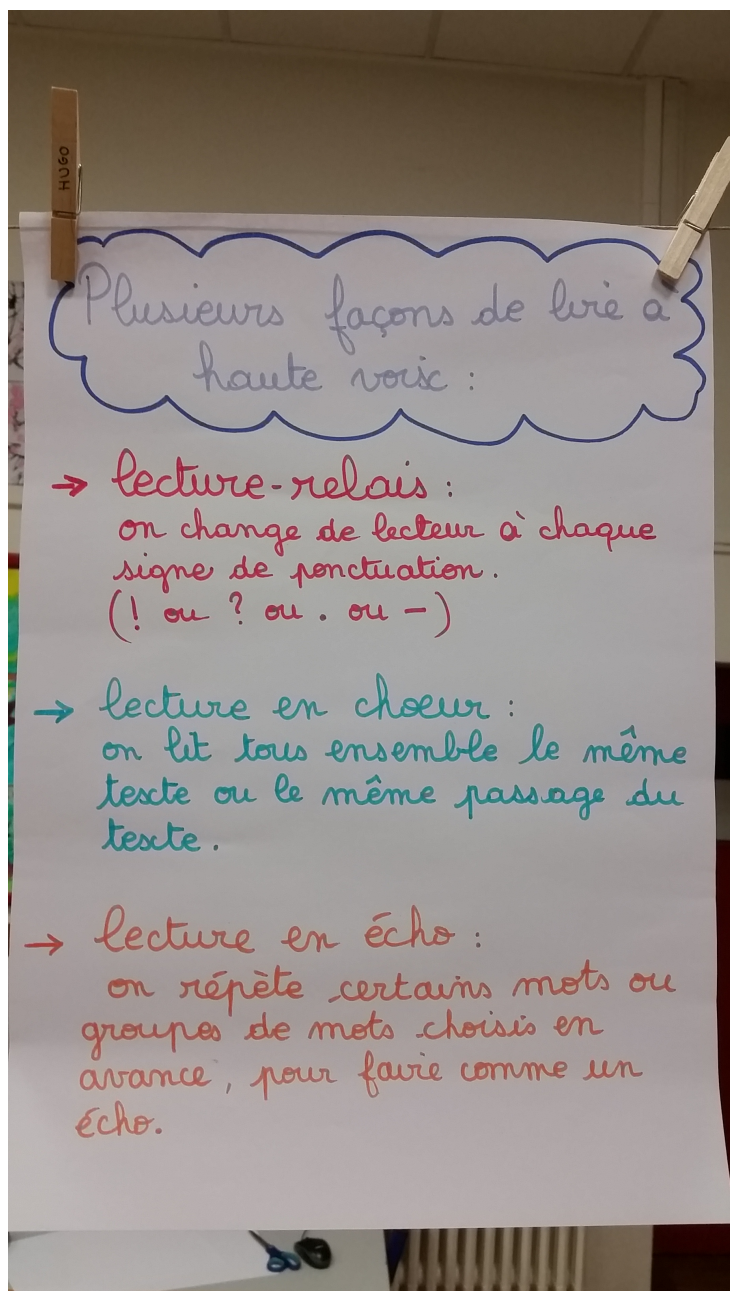 HUGO
Plusieurs façons de lire à
haute voix :
→ lecture-relais :
on change de lecteur à chaque
signe de ponctuation.
(! ou ? ou . ou -)
→ lecture en choeur :
on lit tous ensemble le même
texte ou le même passage du
texte.
→ lecture en écho :
on répète certains mots ou
groupes de mots choisis en
avance, pour faire comme un
écho.